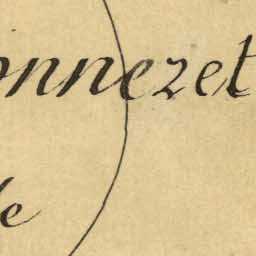 onnezet
le